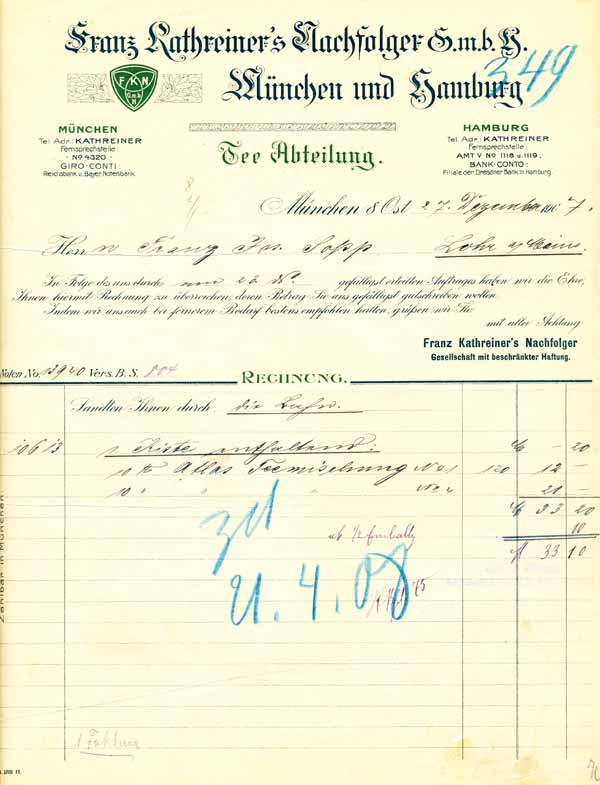 Franz Kathreiner's Nachfolger G.m.b.H.
München und Hamburg
349
FKN
G.m.b
H
MÜNCHEN
Tel. Adr.: KATHREINER
Fernsprechstelle:
No 4320.
GIRO-CONTI:
Reichsbank u. Bayer. Notenbank.
HAMBURG
Tel. Adr.: KATHREINER
Fernsprechstelle:
AMT V No 1118 u. 1119.
BANK-CONTO:
Filiale der Dresdner Bank in Hamburg.
Tee Abteilung.
München 8 Ost 27. Dezember 1907.
Herrn Franz Jos. Sopp Lohr a/Main.
In Folge des uns durch von gefälligst erteilten Auftrages haben wir die Ehre,
Ihnen hiermit Rechnung zu überreichen, deren Betrag Sie uns gefälligst gutschreiben wollen.
Indem wir uns auch bei fernerem Bedarf bestens empfohlen halten, grüßen wir Sie
mit aller Achtung
Franz Kathreiner's Nachfolger
Gesellschaft mit beschränkter Haftung.
Noten No. 13940 Vers. B. S. 804
RECHNUNG.
Sandten Ihnen durch die Bahn.
10613 1 Kiste enthaltend: M – 20
10 Atlas Teemischung No 1 120 12 –
10 " " " No 21 –
M 33 20
ab 1/2 Emballg 10
M 33 10
21.4.08
Zahlbar in München
1 Faktura